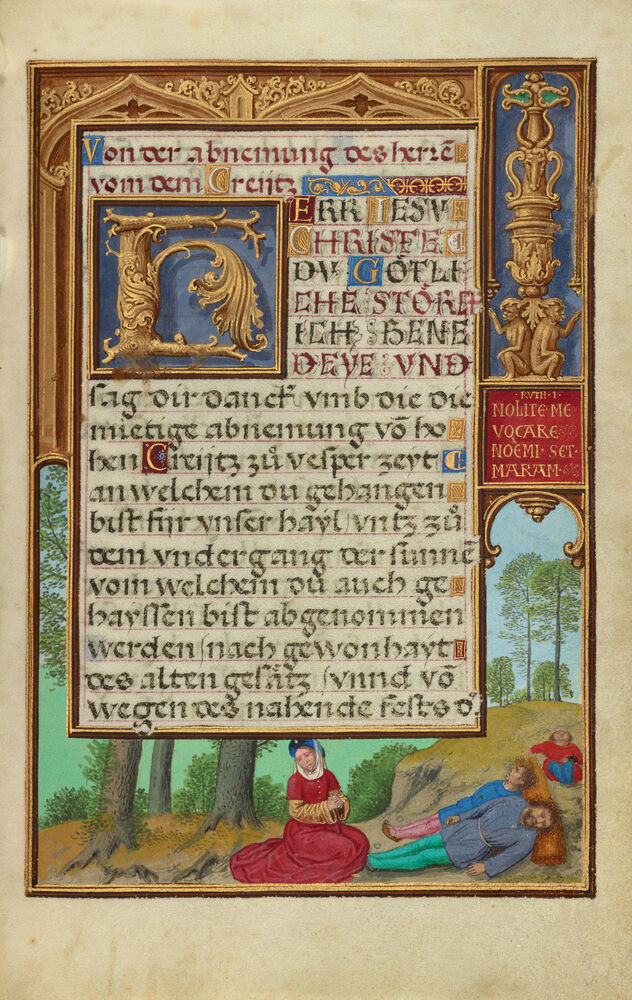 Von der abnemung des herrē
vom dem Creijtz
HERR IESV
CHRISTE
DV GÖTLI
CHE STÖRCK
ICH BENE
DEYE VND
sag dir danck vmb die die
mietige abnemung vō ho
hen Creijtz zů vesper zeyt
an welchem du gehangen
bist fijr vnser hayl vntz zů
dem vndergang der sunnē
vom welchem du auch ge
hayssen bist abgenommen
werden (nach gewonhayt
des alten gesätz (vnnd vō
wegen des nahende fests dˀ
·RVTH·I·
NOLITE·ME
VOCARE
NOEMI·SET·
MARAM·